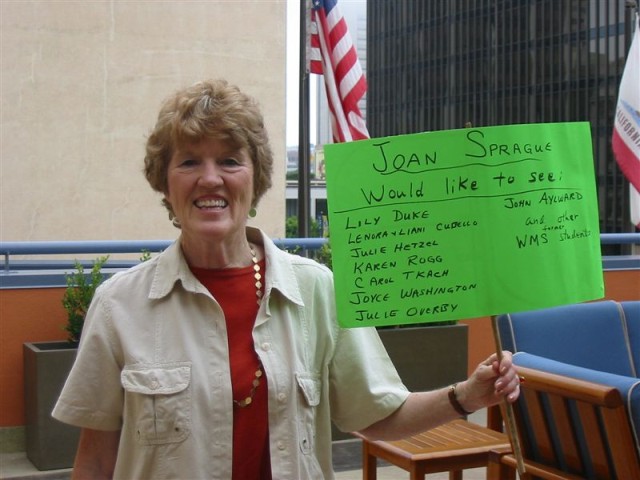 JOAN SPRAGUE
Would like to see:
LILY DUKE
LENORA & LIANI CUBELLO
JULIE HETZEL
KAREN ROGG
CAROL TKACH
JOYCE WASHINGTON
JULIE OVERBY
JOHN AYLWARD
and other
former
WMS students
CALIFORNIA